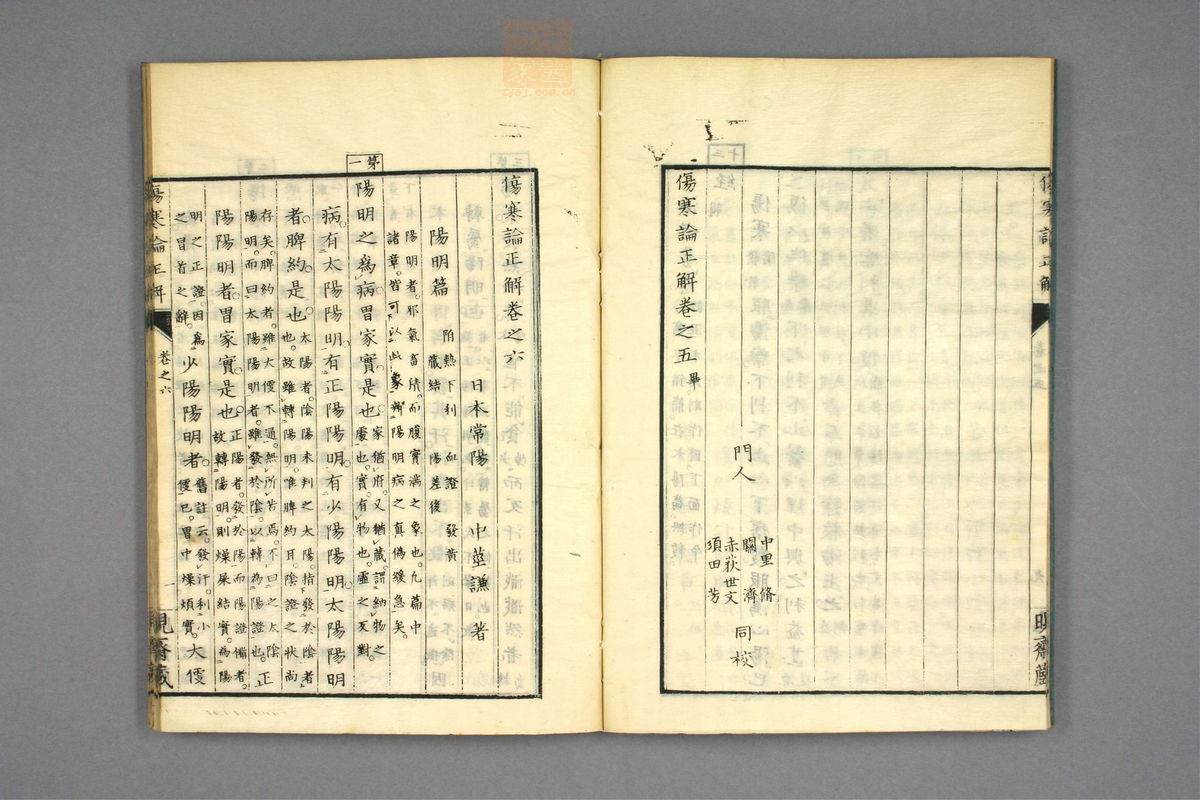 傷寒論正解卷之五畢
門人
中里脩
關濟
赤荻世文
須田芳
同校
傷寒論正解卷之六
日本常陽 中莖謙 著
陽明篇
陷熱下利 血證 發黃
藏結 陽差後
陽明者邪氣畜積而腹實滿之象也凡篇中
諸章皆可以此象辨陽明病之真僞緩急矣
第一
陽明之爲病胃家實是也
家猶府又猶藏謂納物之
處也實有物也虛之反對
病有太陽陽明有正陽陽明有少陽陽明太陽陽明
者脾約是也
太陽者陰陽未判之太陽指發於陰者
也故雖轉陽明唯脾約耳陰證之狀尚
存矣脾約者雖大便不通無所苦焉不曰之太陰
陽明而曰太陽陽明者雖發於陰以轉為陽證也
正
陽陽明者胃家實是也
正陽者發於陽而陽證備者
故轉陽明則燥屎結實為陽
明之正證因為
之冒首之辭
少陽陽明者
舊註云發汗利小
便已胃中燥煩實
大便
傷寒論正解
卷之六
一